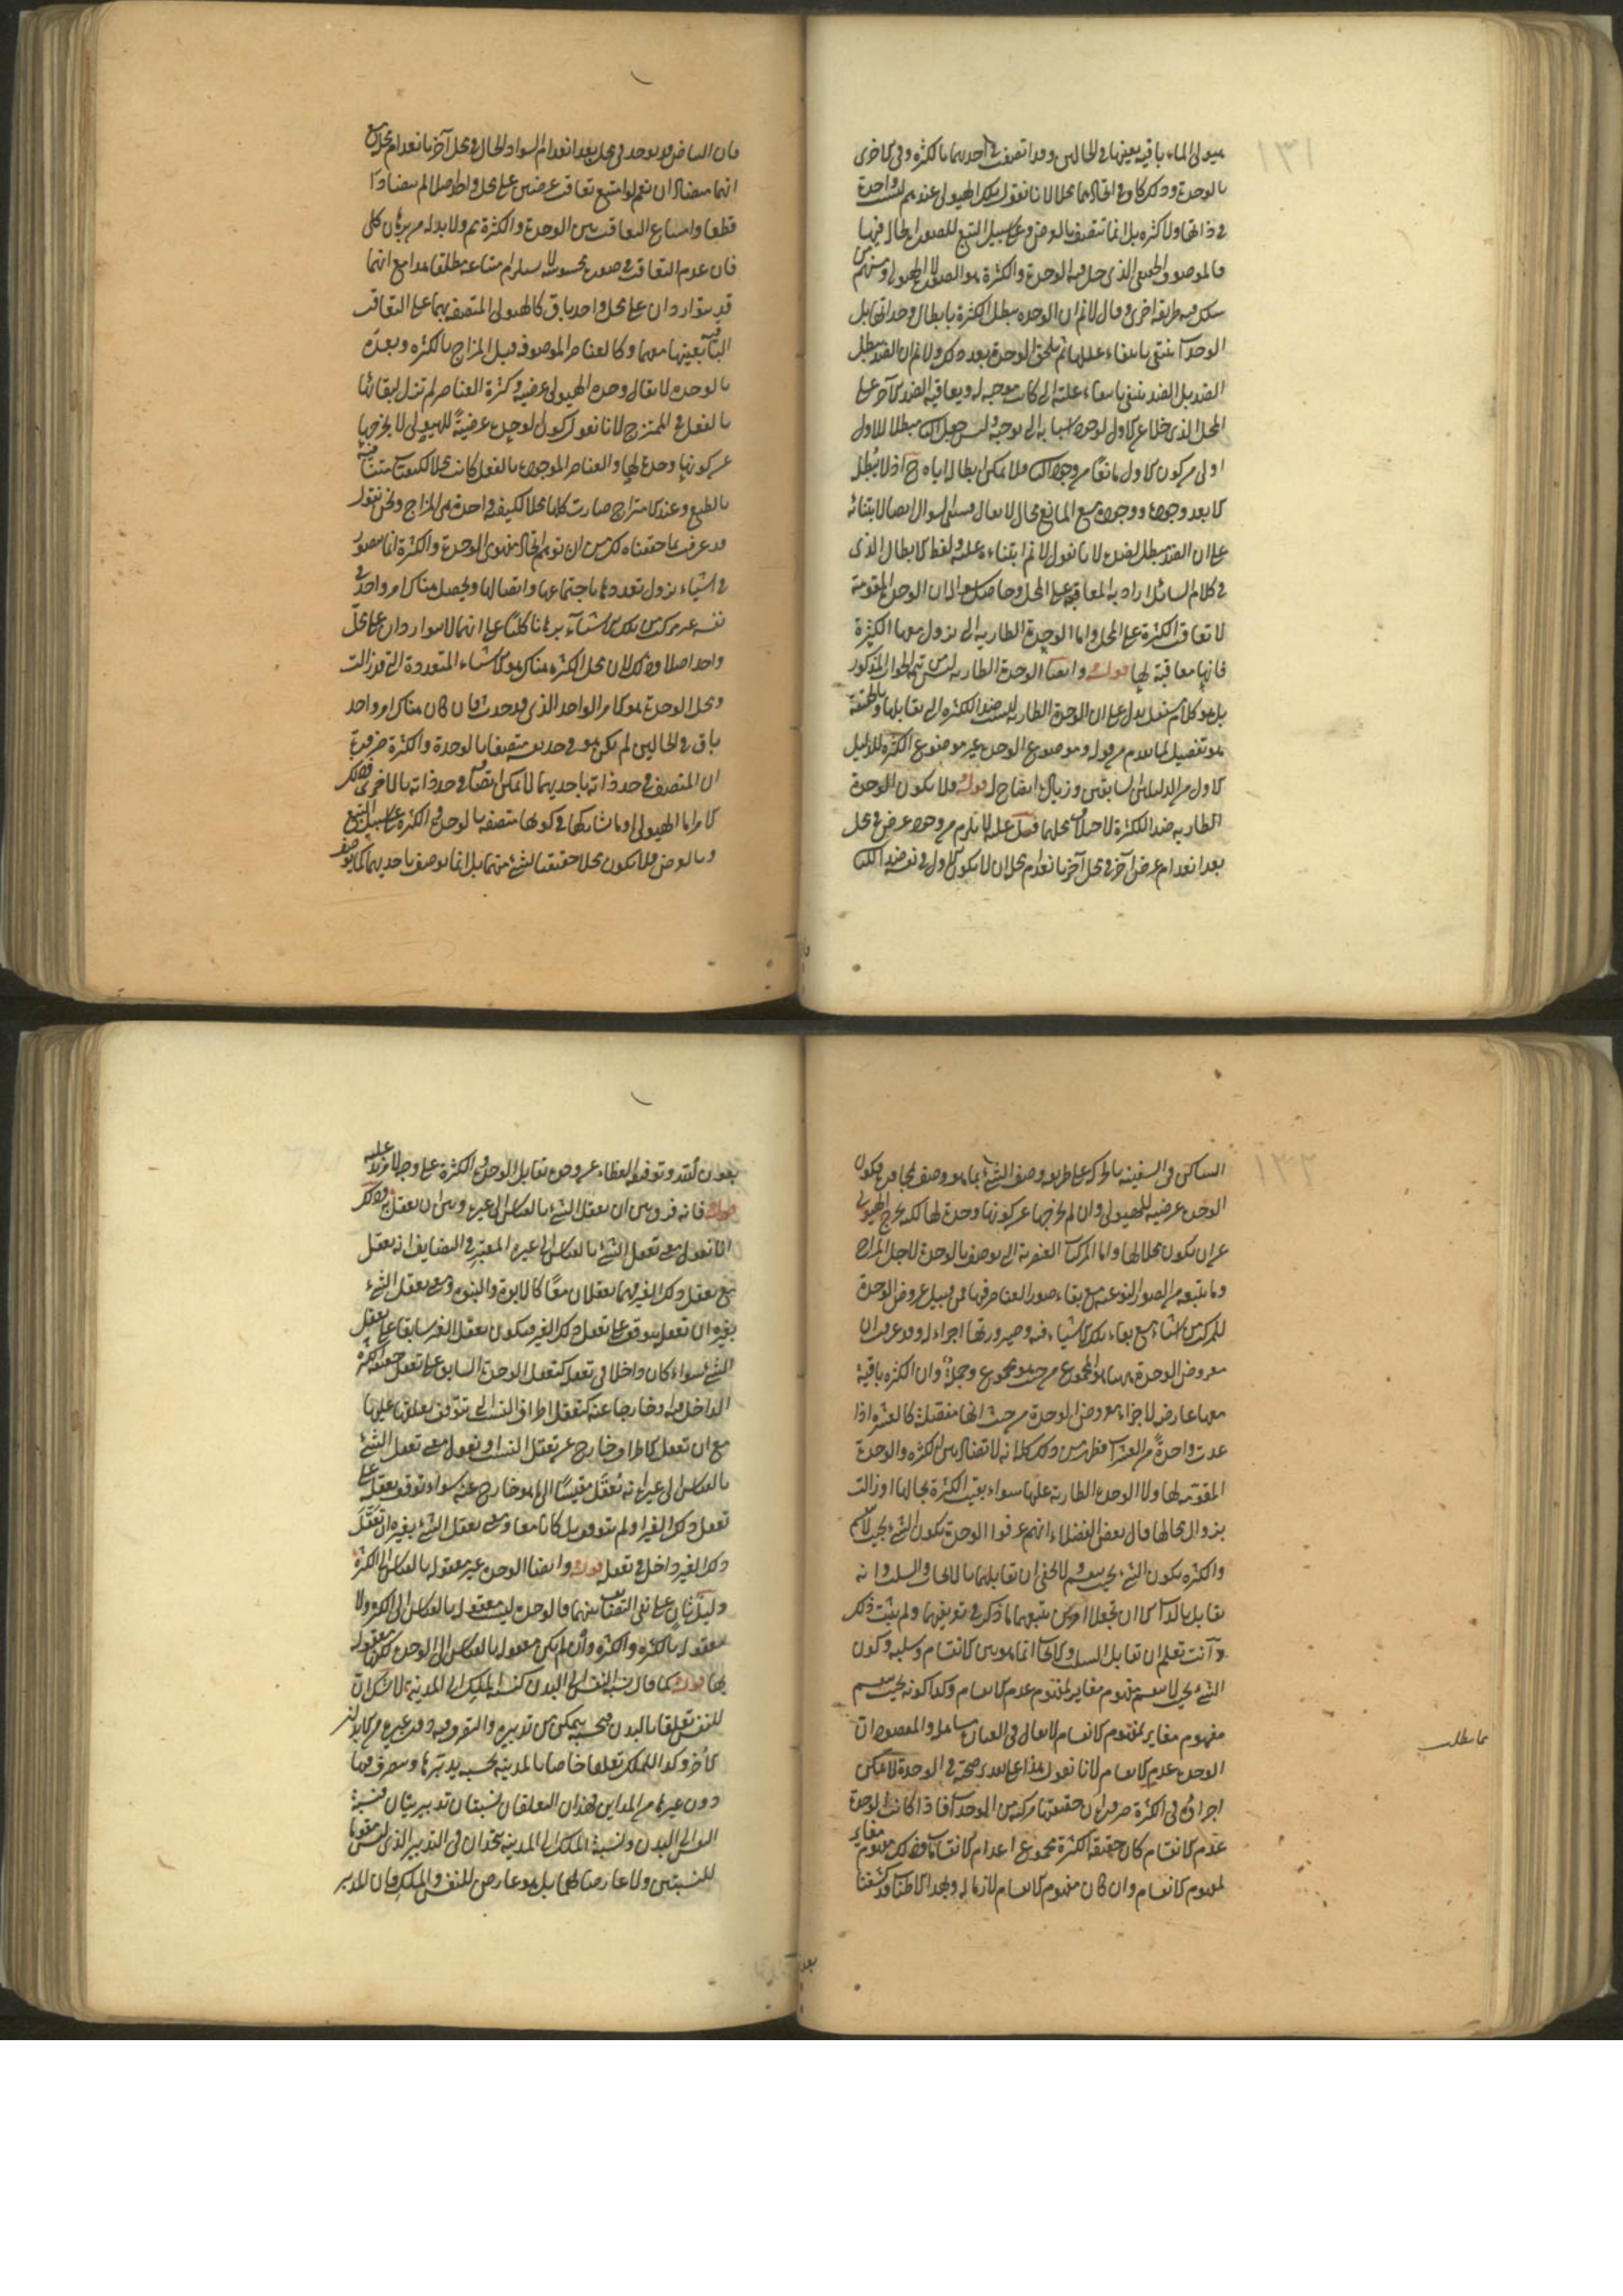 ١٣١
هيولى الماء باقية بعينها في الحالين وقد اتصفت في احديهما بالكثرة وفي الاخرى
بالوحدة وذلك كاف في اتحاد محلها لانا نقول تلك الهيولى عندهم ليست واحدة
في ذاتها ولا كثيرة بل انما تتصف بالعرض وعلى سبيل التبع للصور الحالة فيها
فالموصوف الحقيقي الذي حل فيه الوحدة والكثرة هو الصور لا الهيولى ومنهم من
سلك فيه طريقة اخرى وقال لا نم ان الوحدة تبطل الكثرة بابطال وحداتها بل
الوحدات تنتفي بانتفاء عللها ثم يلحق الوحدة بعد ذلك ولا نم ان الضد يبطل
الضد بل الضد ينتفي بانتفاء علته التي كانت موجبة له ويعاقبه الضد الآخر على
المحل الذي خلا عن الاول لوجود اسبابه التي توجبه وليس جعل الثاني مبطلا للاول
اولى من كون الاول مانعا من وجود الثاني فلا يمكن ابطاله اياه ح اذ لا يبطل
الا بعد وجوده ووجوده مع المانع محال لا يقال مبنى السوال ايضا لابتنائه
على ان الضد يبطل الضد لانا نقول لا نم ابتناءه عليه ولفظ الابطال الذي
في كلام السائل اراد به المعاقبة على المحل وحاصل سؤاله ان الوحدة المقومة
لا تعاقب الكثرة على المحل واما الوحدة الطارية التي تزول معها الكثرة
فانها معاقبة لها قوله وايضا الوحدة الطارية ليس تتمة للجواب المذكور
بل هو كلام مستقل يدل على ان الوحدة الطارية ليست ضد الكثرة التي تقابلها وبالحقيقة
هو تفصيل لما تقدم من قوله وموضوع الوحدة غير موضوع الكثرة للدليل
الاول من الدليلين السابقين وزيادة ايضاح له قوله فلا يكون الوحدة
الطارية ضد الكثرة لاختلاف محلهما قيل عليه لا يلزم من وجود عرض في محل
بعد انعدام عرض آخر في محل آخر بانعدام محله ان لا يكون الاول في نفسه ضد الثاني
فان البياض قد يوجد في محل بعد انعدام السواد الحال في محل آخر بانعدام محله مع
انهما متضادان نعم لو امتنع تعاقب عرضين على محل واحد اصلا لم يتضادا
قطعا وامتناع التعاقب بين الوحدة والكثرة مم ولا بد له من برهان كلي
فان عدم التعاقب في صورة محسوسة لا يستلزم امتناعه مطلقا هذا مع انهما
قد يتواردان على محل واحد باق كالهيولى المتصفة بهما على التعاقب
الباقية بعينها معهما وكالعناصر الموصوفة قبل المزاج بالكثرة وبعده
بالوحدة لا يقال وحدة الهيولى عرضية وكثرة العناصر لم تزل لبقائها
بالفعل في الممتزج لانا نقول كون الوحدة عرضية للهيولى لا يخرجها
عن كونها وحدة لها والعناصر الموجودة بالفعل كانت محلا لكيفيات متنافية
بالطبع وعند الامتزاج صارت كلها محلا لكيفية واحدة هي المزاج ونحن نقول
قد عرفت بما حققناه لك من ان توهم اتحاد موضوعي الوحدة والكثرة انما يتصور
في اشياء يزول تعددها باجتماعها واتصالها ويحصل هناك امر واحد في
نفسه غير مركب من تلك الاشياء برهانا كليا على انهما لا يتواردان على محل
واحد اصلا وذلك لان محل الكثرة هناك هو الاشياء المتعددة التي قد زالت
ومحل الوحدة هو الامر الواحد الذي قد حدث فان كان هناك امر واحد
باق في الحالين لم يكن هو في حد نفسه متصفا بالوحدة والكثرة ضرورة
ان المتصف في حد ذاته باحديهما لا يمكن اتصافه في حد ذاته بالاخرى فذلك
الامر اما الهيولى او ما شاركها في كونها متصفة بالوحدة والكثرة على سبيل التبع
وبالعرض فلا يكون محلا حقيقيا لشيء منهما بل انما يوصف باحديهما كما يوصف
١٣٢
الساكن في السفينة بالحركة على طريق وصف الشيء بما هو وصف لمجاوره فكون
الوحدة عرضية للهيولى وان لم يخرجها عن كونها وحدة لها لكنه يخرج الهيولى
عن ان يكون محلا لها واما المركبات العنصرية التي يوصف بالوحدة لاجل المزاج
وما يتبعه من الصور النوعية مع بقاء صور العناصر فيها فمن قبيل عروض الوحدة
للمركب من اشياء مع بقاء تلك الاشياء فيه وصيرورتها اجزاء له وقد عرفت ان
معروض الوحدة ههنا هو المجموع من حيث هو مجموع وجملة وان الكثرة باقية
معها عارضة لاجزاء معروض الوحدة من حيث انها منفصلة كالعشرة اذا
عدت واحدة من العشرات فظهر من ذلك كله انه لا تضاد بين الكثرة والوحدة
المقومة لها ولا الوحدة الطارية عليها سواء بقيت الكثرة بحالها او زالت
بزوال محالها قال بعض الفضلاء انهم عرفوا الوحدة بكون الشيء بحيث لا ينقسم
والكثرة بكون الشيء بحيث ينقسم لا يخفى ان تقابلهما بالايجاب والسلب وانه
تقابل بالذات الا ان تجعلا امرين يتبعهما ما ذكر في تعريفهما ولم يثبت ذلك
وانت تعلم ان تقابل السلب والايجاب انما هو بين الانقسام وسلبه وكون
الشيء بحيث لا ينقسم مفهوم مغاير لمفهوم عدم الانقسام وكذا كونه بحيث ينقسم
مفهوم مغاير لمفهوم الانقسام لا يقال في العبارة تساهل والمقصود ان
الوحدة عدم الانقسام لانا نقول هذا على تقدير صحته في الوحدة لا يمكن
اجراؤه في الكثرة ضرورة ان حقيقتها مركبة من الوحدات فاذا كانت الوحدة
عدم الانقسام كان حقيقة الكثرة مجموع اعدام الانقسامات وذلك مفهوم مغاير
لمفهوم الانقسام وان كان مفهوم الانقسام لازما له وبهذا الاطناب قد كشفنا
بعون الله وتوفيقه الغطاء عن وجوه تقابل الوحدة والكثرة على وجه لا مزيد عليه
قوله فانه فرق بين ان يعقل الشيء بالقياس الى غيره وبين ان يعقل به وذلك
انا نقول معنى تعقل الشيء بالقياس الى غيره المعتبر في التضايف انه يعقل
مع تعقل ذلك الغير فهما يعقلان معا كالابوة والبنوة ومعنى تعقل الشيء
بغيره ان تعقله يتوقف على تعقل ذلك الغير فيكون تعقل الغير سابقا على تعقل
الشيء سواء كان داخلا في تعقله كتعقل الوحدة السابق على تعقل حقيقة الكثرة
الداخل فيه او خارجا عنه كتعقل اطراف النسب التي تتوقف تعلقها عليها
مع ان تعقل الاطراف خارج عن تعقل النسب او نقول معنى تعقل الشيء
بالقياس الى غيره انه تعقل مقيسا الى ما هو خارج عنه سواء توقف تعقله على
تعقل ذلك الغير او لم يتوقف بل كانا معا ومعنى تعقل الشيء بغيره ان تعقل
ذلك الغير داخل في تعقله قوله وايضا الوحدة غير معقولة بالقياس الى الكثرة
دليل ثان على نفي التضايف بينهما فالوحدة ليست معقولة بالقياس الى الكثرة ولا
معقولة بالكثرة والكثرة وان لم يكن معقولة بالقياس الى الوحدة لكنها معقولة
بها قوله كما قال نسبة النفس الى البدن كنسبة الملك الى المدينة لا شك ان
للنفس تعلقا بالبدن بحسبه يتمكن من تدبيره والتصرف فيه دون غيره من الابدان
الاخر وكذا للملك تعلقا خاصا بالمدينة بحسبه يدبرها ويتصرف فيها
دون غيرها من المدائن فهذان التعلقان نسبتان تدبيريتان فنسبة
النفس الى البدن ونسبة الملك الى المدينة متحدتان في التدبير الذي ليس مقوما
للنسبتين ولا عارضا لهما بل هو عارض للنفس والملك فان المدبر